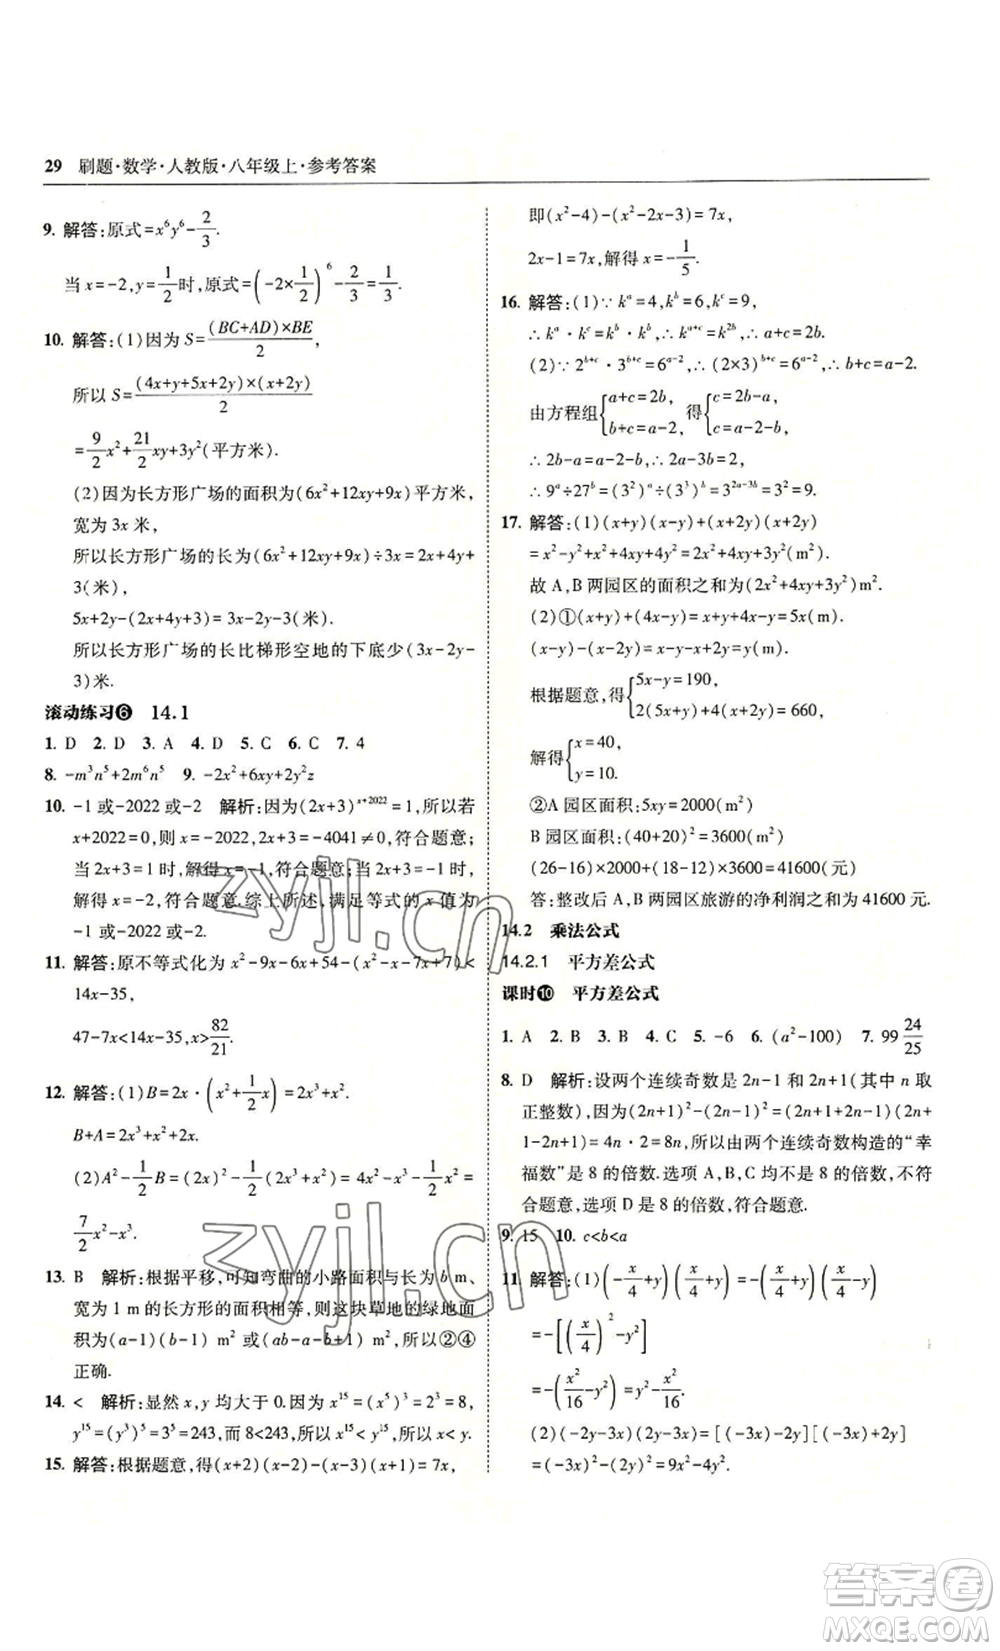 29 刷题·数学·人教版·八年级上·参考答案
9. 解答:原式=x⁶y⁶-2/3.
当x=-2,y=1/2时,原式=(-2×1/2)⁶-2/3=1/3.
10. 解答:(1)因为S=(BC+AD)×BE/2,
所以S=(4x+y+5x+2y)×(x+2y)/2
=9/2x²+21/2xy+3y²(平方米).
(2)因为长方形广场的面积为(6x²+12xy+9x)平方米,
宽为3x米,
所以长方形广场的长为(6x²+12xy+9x)÷3x=2x+4y+
3(米),
5x+2y-(2x+4y+3)=3x-2y-3(米).
所以长方形广场的长比梯形空地的下底少(3x-2y-
3)米.
滚动练习❻ 14.1
1. D 2. D 3. A 4. D 5. C 6. C 7. 4
8. -m³n⁵+2m⁶n⁵ 9. -2x²+6xy+2y²z
10. -1或-2022或-2 解析:因为(2x+3)ˣ⁺²⁰²²=1,所以若
x+2022=0,则x=-2022,2x+3=-4041≠0,符合题意;
当2x+3=1时,解得x=-1,符合题意;当2x+3=-1时,
解得x=-2,符合题意.综上所述,满足等式的x值为
-1或-2022或-2.
11. 解答:原不等式化为x²-9x-6x+54-(x²-x-7x+7)<
14x-35,
47-7x<14x-35,x>82/21.
12. 解答:(1)B=2x·(x²+1/2x)=2x³+x²,
B+A=2x³+x²+4x².
(2)A²-1/2B=(-2x)²-1/2(2x³+x²)=4x²-x³-1/2x²=
7/2x²-x³.
13. B 解析:根据平移,可知弯曲的小路面积与长为b m、
宽为1 m的长方形的面积相等,则这块草地的绿地面
积为(a-1)(b-1) m²或(ab-a-b+1) m²,所以②④
正确.
14. < 解析:显然x,y均大于0.因为x¹⁵=(x⁵)³=2³=8,
y¹⁵=(y³)⁵=3⁵=243,而8<243,所以x¹⁵<y¹⁵,所以x<y.
15. 解答:根据题意,得(x+2)(x-2)-(x-3)(x+1)=7x,
即(x²-4)-(x²-2x-3)=7x,
2x-1=7x,解得x=-1/5.
16. 解答:(1)∵kᵃ=4,kᵇ=6,kᶜ=9,
∴kᵃ·kᶜ=kᵇ·kᵇ,∴kᵃ⁺ᶜ=k²ᵇ,∴a+c=2b.
(2)∵2ᵇ⁺ᶜ·3ᵇ⁺ᶜ=6ᵃ⁻²,∴(2×3)ᵇ⁺ᶜ=6ᵃ⁻²,∴b+c=a-2.
由方程组{a+c=2b, b+c=a-2, 得{c=2b-a, c=a-2-b,
∴2b-a=a-2-b,∴2a-3b=2,
∴9ᵃ÷27ᵇ=(3²)ᵃ÷(3³)ᵇ=3²ᵃ⁻³ᵇ=3²=9.
17. 解答:(1)(x+y)(x-y)+(x+2y)(x+2y)
=x²-y²+x²+4xy+4y²=2x²+4xy+3y²(m²).
故A,B两园区的面积之和为(2x²+4xy+3y²)m².
(2)①(x+y)+(4x-y)=x+y+4x-y=5x(m).
(x-y)-(x-2y)=x-y-x+2y=y(m).
根据题意,得{5x-y=190, 2(5x+y)+2(y+y)=660,
解得{x=40, y=10.
②A园区面积:5xy=2000(m²)
B园区面积:(40+20)²=3600(m²)
(26-16)×2000+(18-12)×3600=41600(元)
答:整改后A,B两园区旅游的净利润之和为41600元.
14.2 乘法公式
14.2.1 平方差公式
课时❿ 平方差公式
1. A 2. B 3. B 4. C 5. -6 6. (a²-100) 7. 99 24/25
8. D 解析:设两个连续奇数是2n-1和2n+1(其中n取
正整数),因为(2n+1)²-(2n-1)²=(2n+1+2n-1)(2n+
1-2n+1)=4n·2=8n,所以由两个连续奇数构造的“幸
福数”是8的倍数.选项A,B,C均不是8的倍数,不符
合题意,选项D是8的倍数,符合题意.
9. 15 10. c<b<a
11. 解答:(1)(-x/4+y)(x/4+y)=-(x/4-y)(x/4+y)
=-[(x/4)²-y²]
=-(x²/16-y²)=-x²/16+y².
(2)(-2y-3x)(-3x+2y)=[(-3x)-2y][(-3x)+2y]
=(-3x)²-(2y)²=9x²-4y².
zyjl.cn
zyjl.cn
答案圈
MXQE.COM